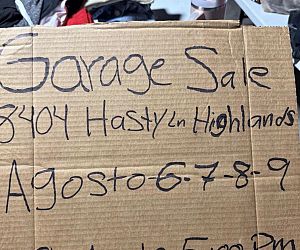 Garage Sale
8404 Hasty Ln Highlands
Agosto-6-7-8-9